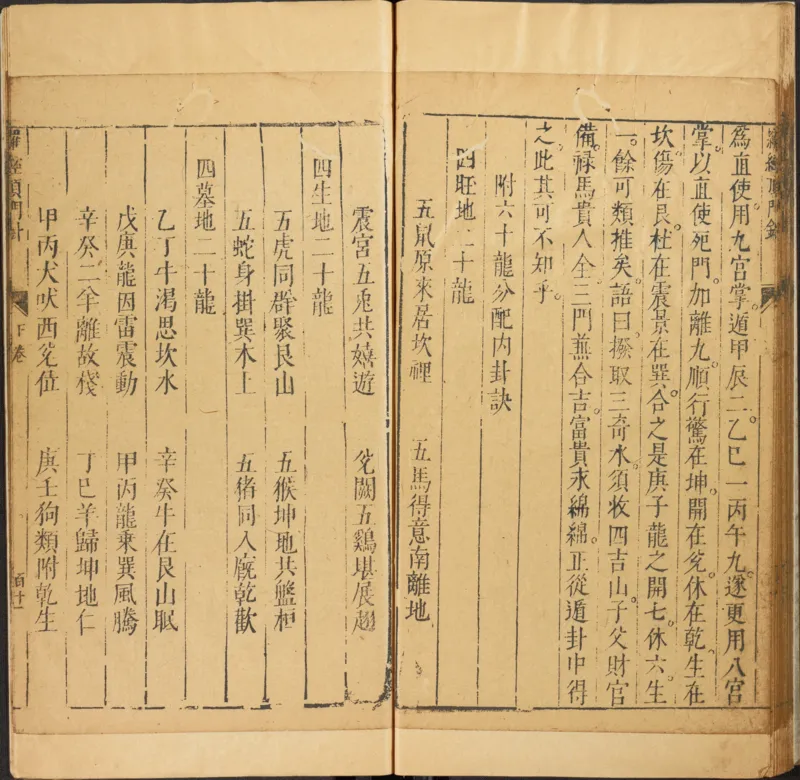 羅經頂門針
為直使用九宮掌。遁甲辰二。乙巳一丙午九。遂更用八宮
掌。以直使死門。加離九。順行驚在坤。開在兌。休在乾。生在
坎。傷在艮。杜在震。景在巽。合之是庚子龍之開七。休六。生
一。餘可類推矣。語曰。撥取三奇水。須收四吉山。子父財官
備。祿馬貴人全。三門兼合吉。富貴永綿綿。正從遁卦中得
之。此其可不知乎。
附六十龍分配內卦訣
四旺地二十龍
五鼠原來居坎裡 五馬得意南離地
震宮五兎共嬉遊 兌闕五鷄堪展翅
四生地二十龍
五虎同群聚艮山 五猴坤地共盤桓
五蛇身掛巽木上 五猪同入廐乾歡
四墓地二十龍
乙丁牛渴思坎水 辛癸牛在艮山眠
戊庚龍因雷震動 甲丙龍乘巽風騰
辛癸二羊離故棧 丁巳羊歸坤地仁
甲丙犬吠西兌位 庚壬狗類附乾生
羅經頂門針 下卷 百十一